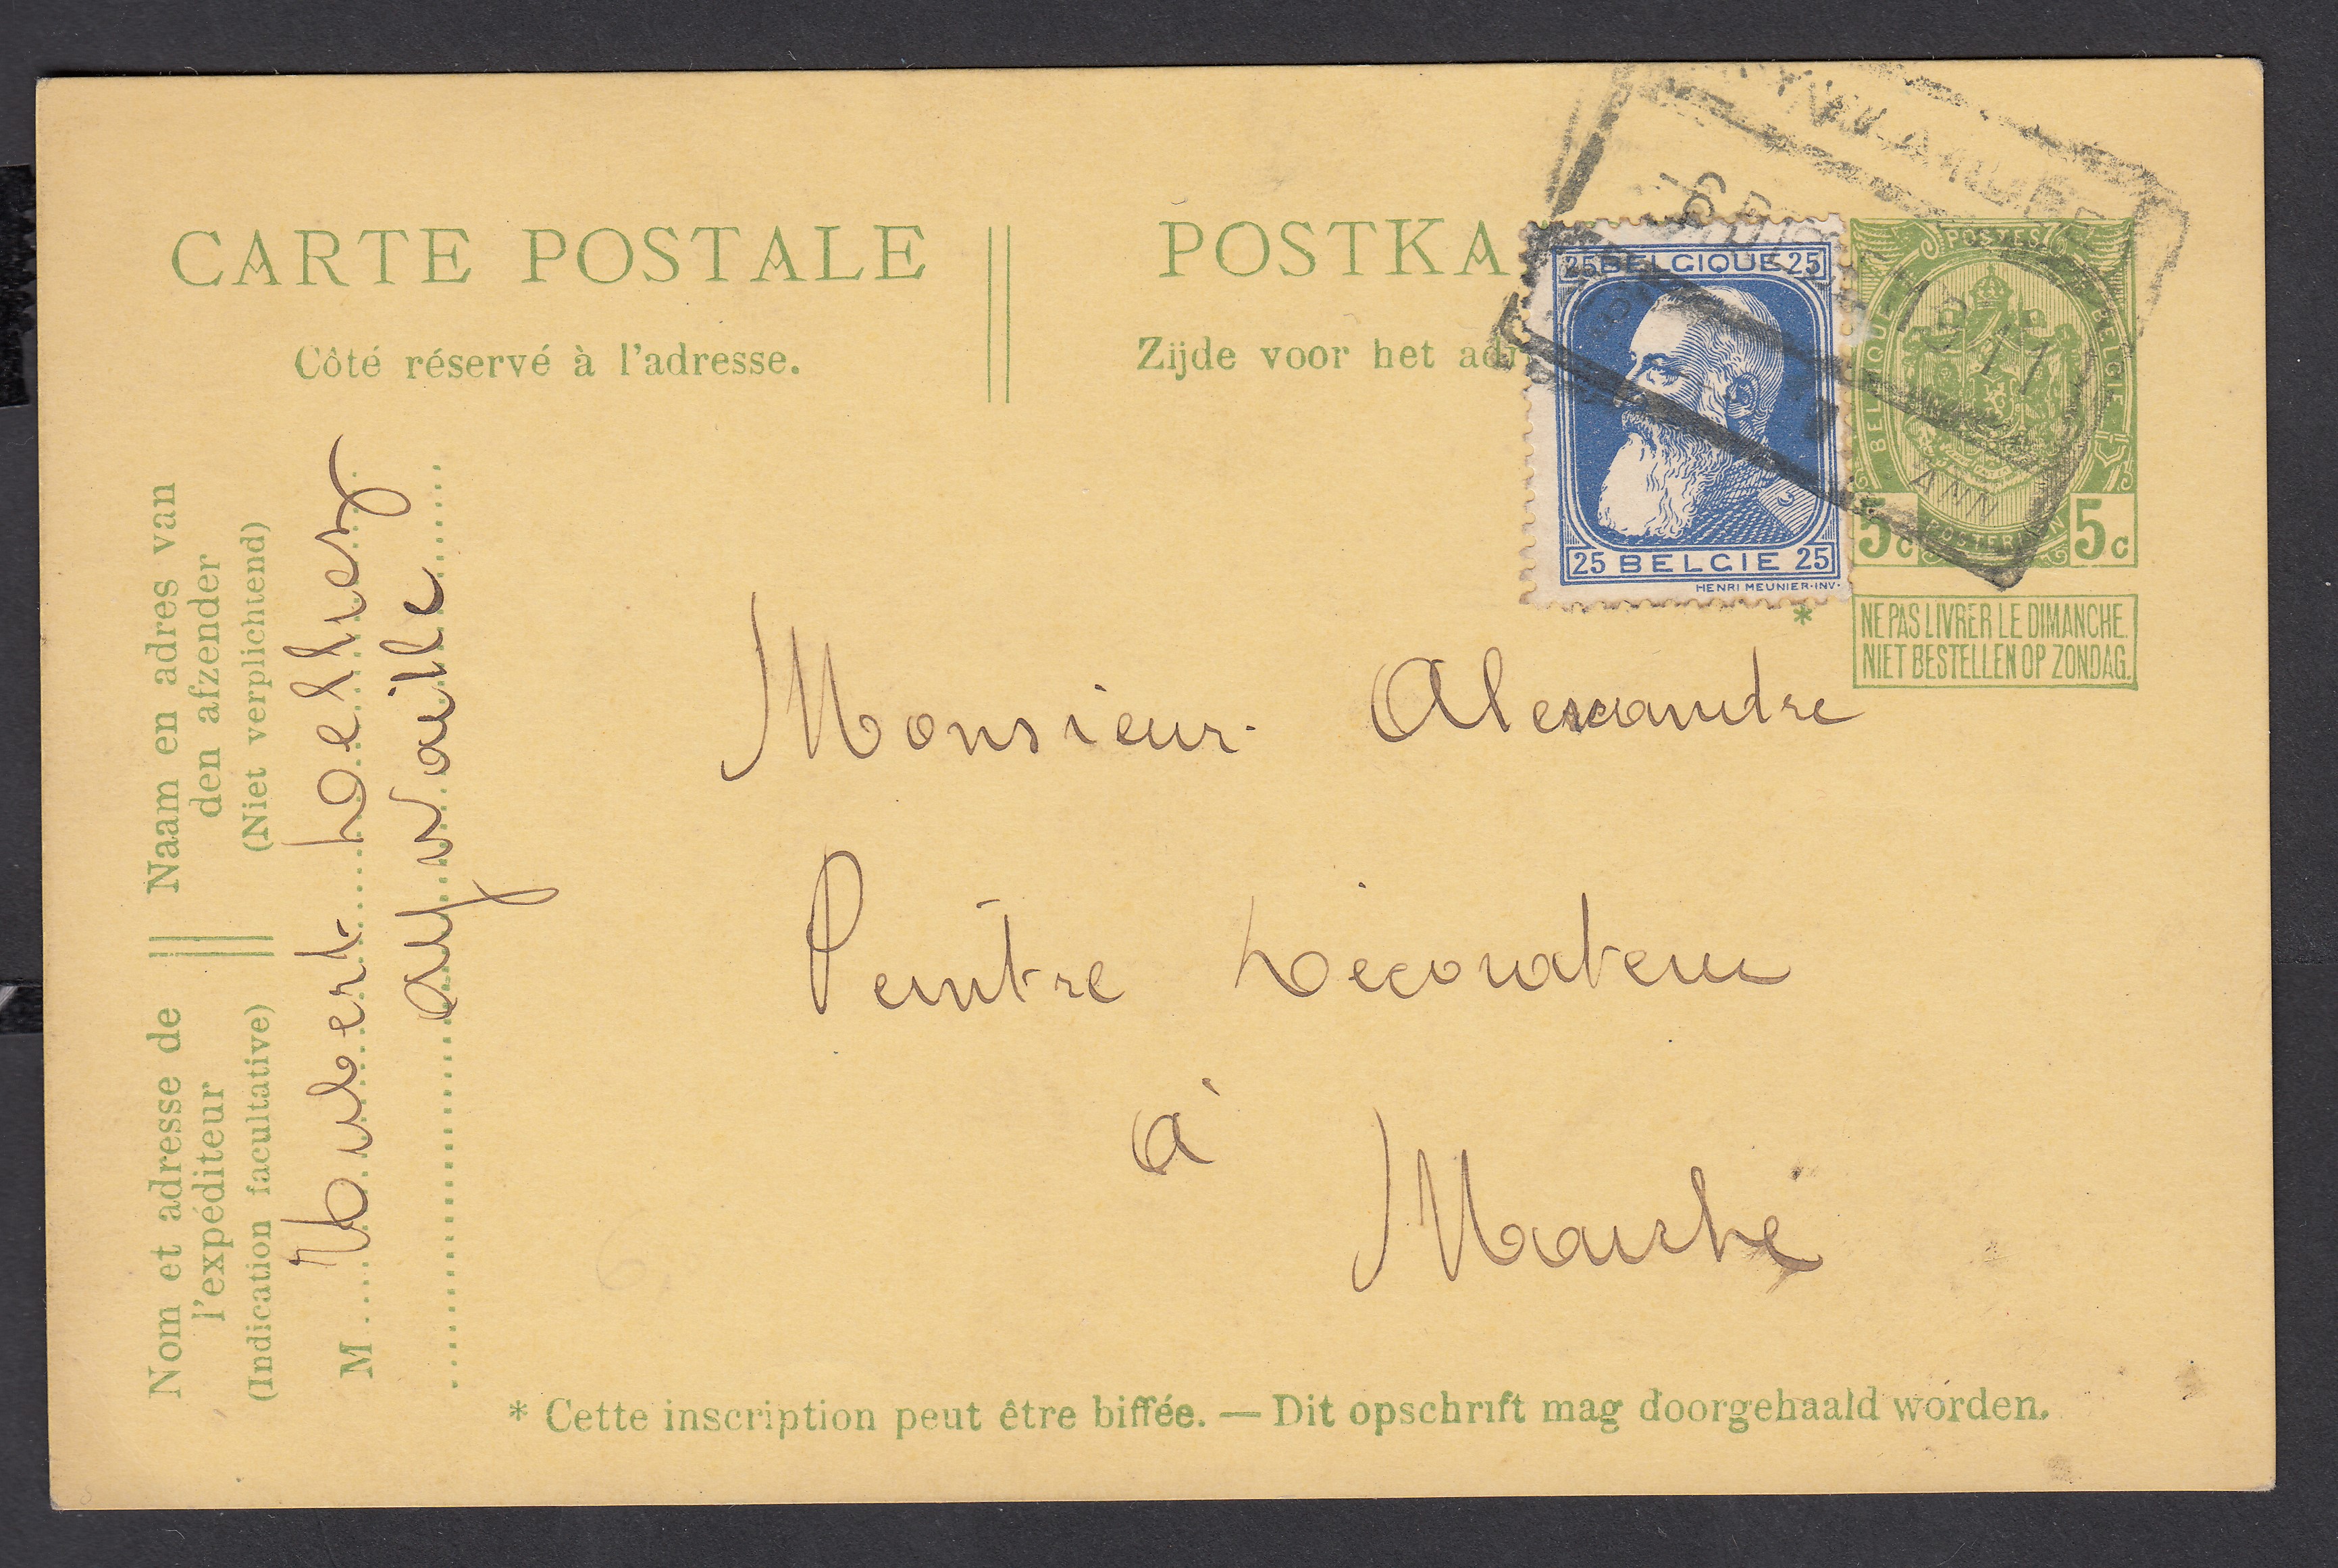 CARTE POSTALE
Côté réservé à l'adresse.
POSTKA
Zijde voor het adr
25 BELGIQUE 25
25 BELGIE 25
HENRI MEUNIER·INV·
POSTES
BELGIQUE
BELGIE
POSTERIJEN
5c 5c
1911
*
NE PAS LIVRER LE DIMANCHE.
NIET BESTELLEN OP ZONDAG.
Monsieur Alexandre
Peintre Decorateur
à
Marche
Nom et adresse de l'expéditeur
(Indication facultative)
Naam en adres van den afzender
(Niet verplichtend)
M
aywaille
* Cette inscription peut être biffée. — Dit opschrift mag doorgehaald worden.